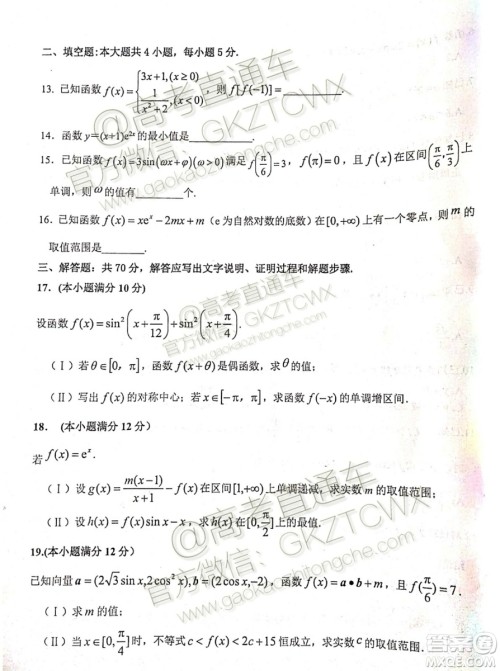 二、填空题:本大题共4小题,每小题5分.
13. 已知函数 f(x)={3x+1,(x≥0) 1/(x²+2),(x<0) ,则 f[f(-1)]=________.
14. 函数 y=(x+1)e²ˣ的最小值是________.
15. 已知函数 f(x)=3sin(ωx+φ)(ω>0) 满足 f(π/6)=3, f(π)=0, f(x) 在区间 (π/6, π/3) 上
单调,则 ω 的值有________个.
16. 已知函数 f(x)=xeˣ-2mx+m(e为自然对数的底数)在[0,+∞)上有一个零点,则 m 的
取值范围是________.
三、解答题:共70分,解答应写出文字说明、证明过程和解题步骤.
17. (本小题满分10分)
设函数 f(x)=sin²(x+π/12)+sin²(x+π/4).
(Ⅰ)若 θ∈[0, π], 函数 f(x+θ) 是偶函数,求 θ 的值;
(Ⅱ)写出 f(x) 的对称中心;若 x∈[-π, π], 求函数 f(-x) 的单调增区间.
18. (本小题满分12分)
若 f(x)=eˣ.
(Ⅰ)设 g(x)=m(x-1)/(x+1)-f(x) 在区间[1,+∞)上单调递减,求实数 m 的取值范围;
(Ⅱ)设 h(x)=f(x)sin x-x, 求 h(x) 在[0,π/2]上的取值范围.
19.(本小题满分12分)
已知向量 a=(2√3sin x,2cos²x),b=(2cos x,-2), 函数 f(x)=a•b+m, 且 f(π/6)=7.
(Ⅰ)求 m 的值;
(Ⅱ)当 x∈[0,π/4]时,不等式 c<f(x)<2c+15 恒成立,求实数 c 的取值范围.
@高考直通车
官方微信:GKZTCWX
www.gaokaozhitongche.com
@高考直通车
官方微信:GKZTCWX
www.gaokaozhitongche.com
@高考直通车
官方微信:GKZTCWX
www.gaokaozhitongche.com
答案圈
MXQE.COM